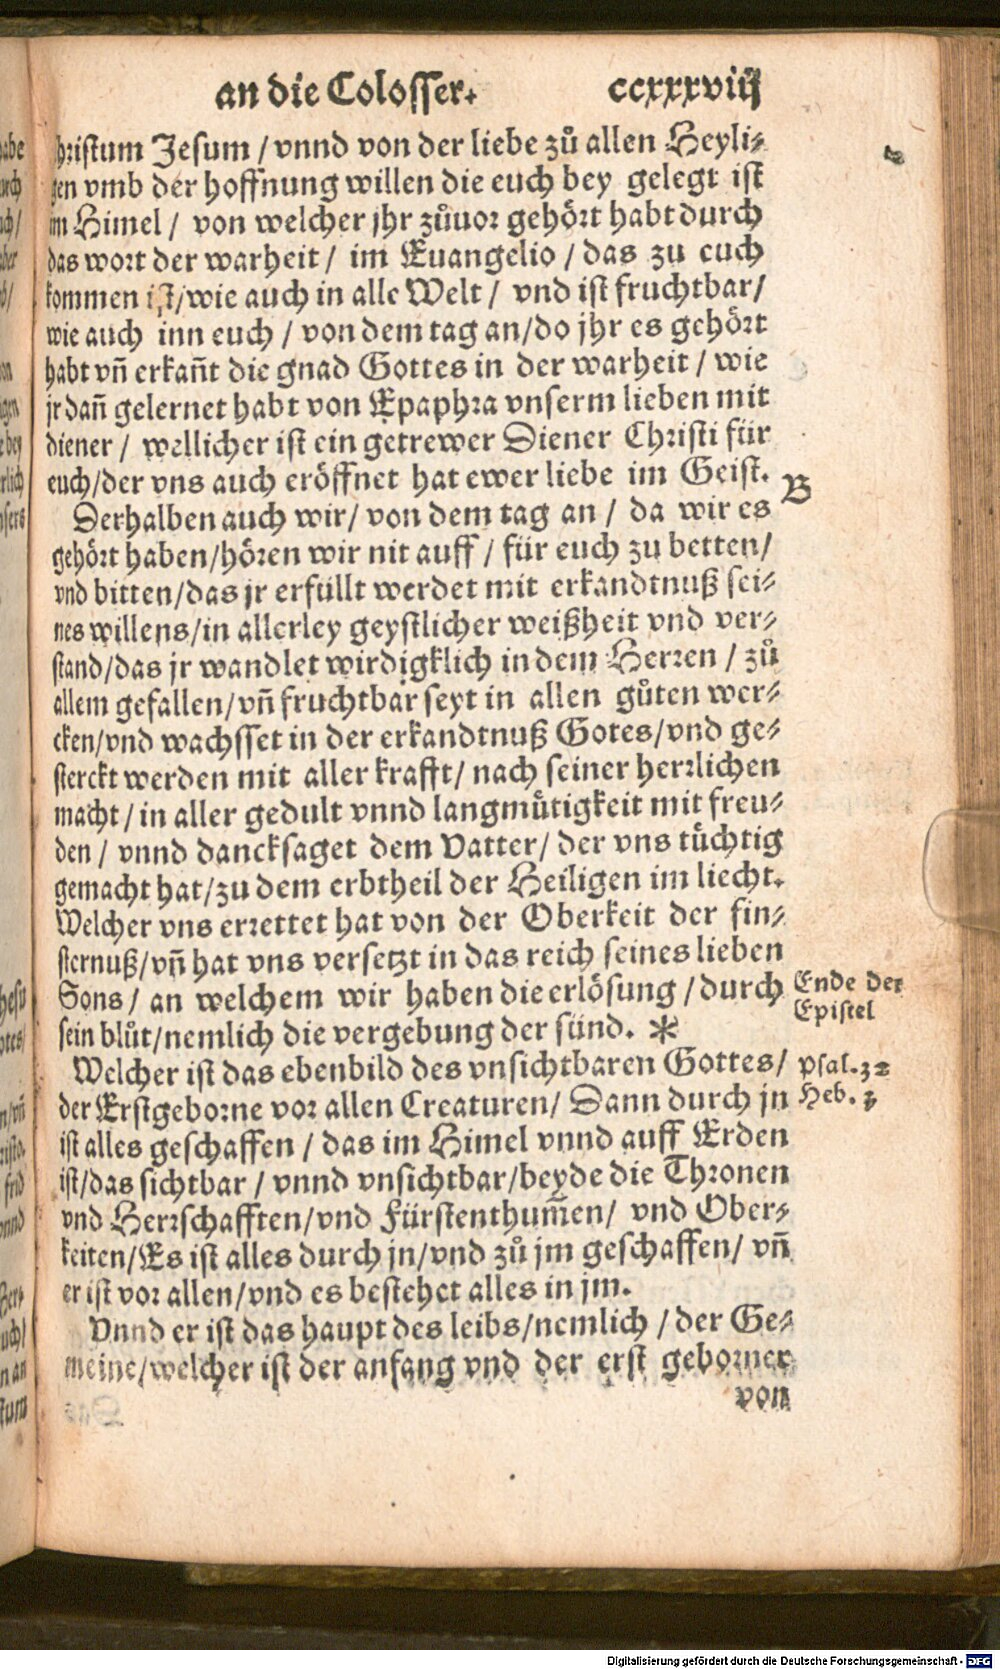 an die Colosser. ccxxxviij
Christum Jesum / vnnd von der liebe zů allen Heyli⸗
gen vmb der hoffnung willen die euch bey gelegt ist
im Himel / von welcher jhr zůuor gehört habt durch
das wort der warheit / im Euangelio / das zu euch
kommen ist / wie auch in alle Welt / vnd ist fruchtbar /
wie auch inn euch / von dem tag an / do jhr es gehört
habt vñ erkañt die gnad Gottes in der warheit / wie
jr dañ gelernet habt von Epaphra vnserm lieben mit
diener / wellicher ist ein getrewer Diener Christi für
euch / der vns auch eröffnet hat ewer liebe im Geist.
B
Derhalben auch wir / von dem tag an / da wir es
gehört haben / hören wir nit auff / für euch zu betten /
vnd bitten / das jr erfüllt werdet mit erkandtnuß sei⸗
nes willens / in allerley geystlicher weißheit vnd ver⸗
stand / das jr wandlet wirdigklich in dem Herren / zů
allem gefallen / vñ fruchtbar seyt in allen gůten wer⸗
cken / vnd wachsset in der erkandtnuß Gotes / vnd ge⸗
sterckt werden mit aller krafft / nach seiner herrlichen
macht / in aller gedult vnnd langmůtigkeit mit freu⸗
den / vnnd dancksaget dem Vatter / der vns tüchtig
gemacht hat / zu dem erbtheil der Heiligen im liecht.
Welcher vns errettet hat von der Oberkeit der fin⸗
sternuß / vñ hat vns versetzt in das reich seines lieben
Sons / an welchem wir haben die erlösung / durch
sein blůt / nemlich die vergebung der sünd. *
Ende der
Epistel
Welcher ist das ebenbild des vnsichtbaren Gottes /
der Erstgeborne vor allen Creaturen / Dann durch jn
ist alles geschaffen / das im Himel vnnd auff Erden
ist / das sichtbar / vnnd vnsichtbar / beyde die Thronen
vnd Herrschafften / vnd Fürstenthum̃en / vnd Ober⸗
keiten / Es ist alles durch jn / vnd zů jm geschaffen / vñ
er ist vor allen / vnd es bestehet alles in jm.
Psal. 32
Heb. 1
Vnnd er ist das haupt des leibs / nemlich / der Ge⸗
meine / welcher ist der anfang vnd der erst geborner
von
Digitalisierung gefördert durch die Deutsche Forschungsgemeinschaft - DFG